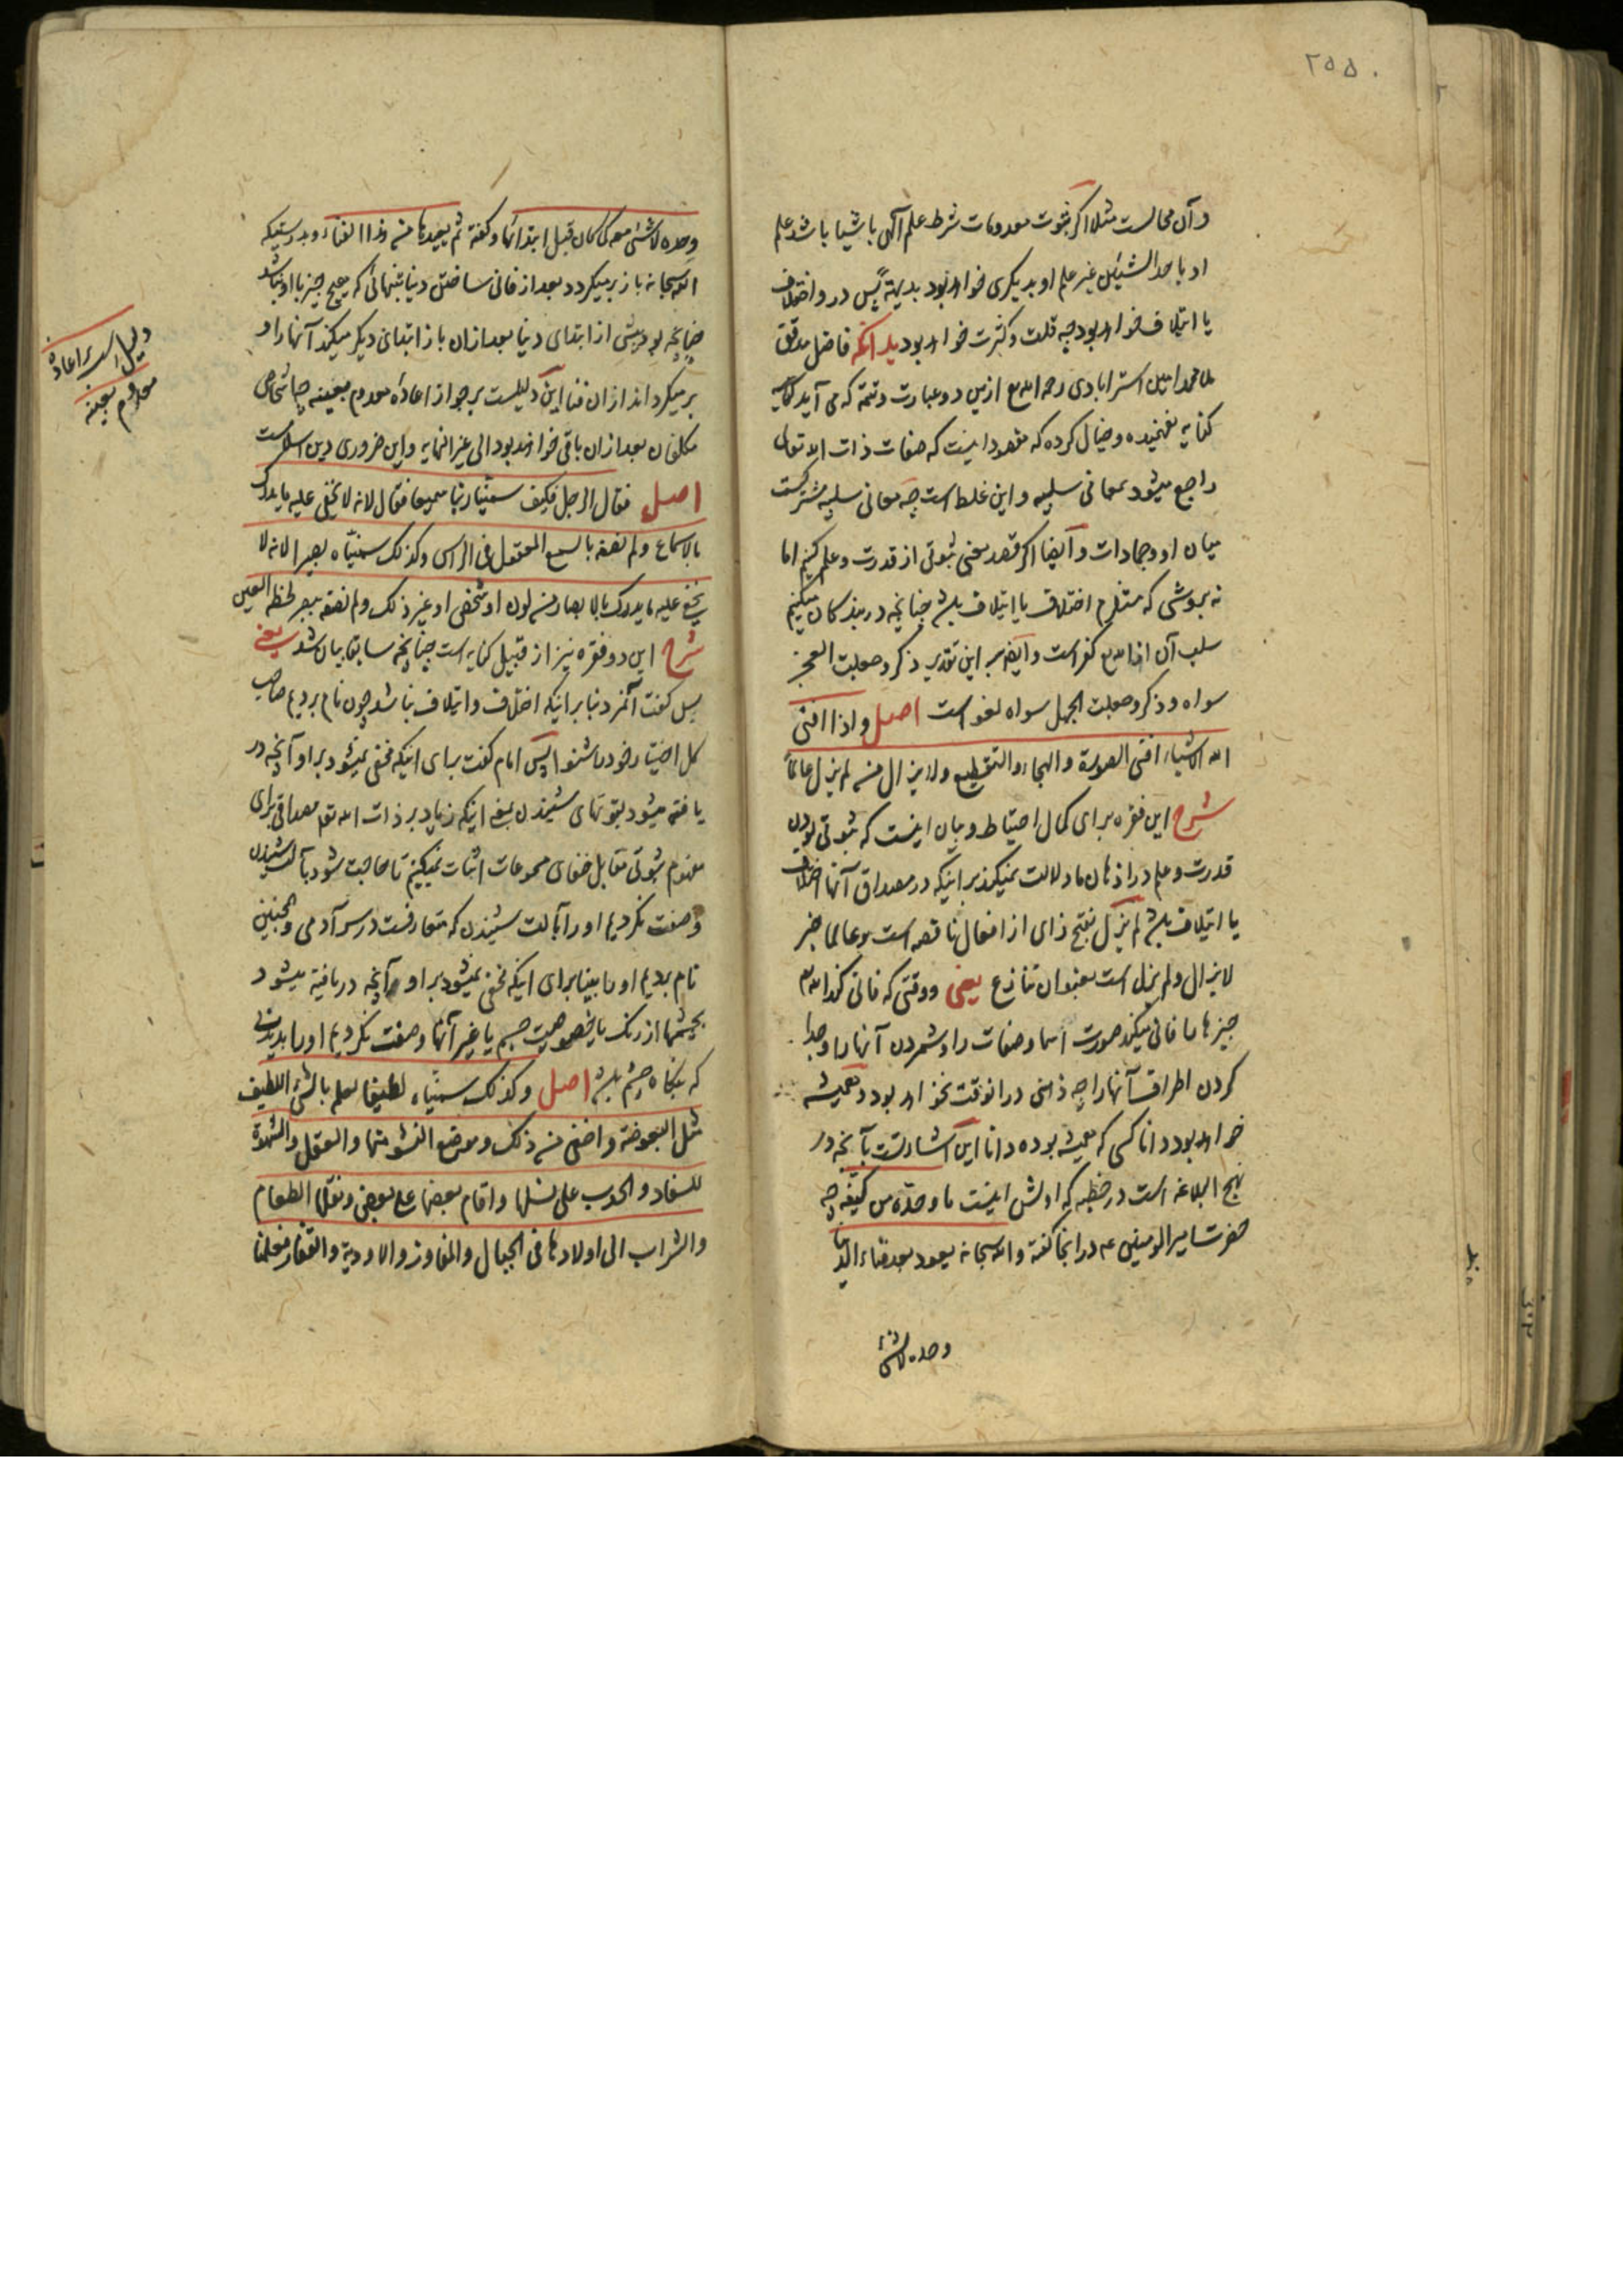 ۲۵۵
و آن محالست مثلا اگر ثبوت معدومات شرط علم آلهی باشیا باشد علم
او باحد الشیئین غیر علم او بدیگری خواهد بود بدیهة پس در و اختلاف
یا ایتلاف خواهد بود چه قلت و کثرت خواهد بود بدانکه فاضل مدقق
ملا محمد امین استرابادی رحمه الله ازین دو عبارت و تتمه که می آید
کنایه نفهمیده و خیال کرده که مقصود اینست که صفات ذات الله تعالی
راجع میشود بمعانی سلبیه و این غلط است چه معانی سلبیه مشترکست
میان او و جمادات و ایضا اگر قصد معنی ثبوتی از قدرت و علم کنیم اما
نه بروشی که مستلزم اختلاف یا ایتلاف باشد چنانچه در بندکان میکنیم
سلب آن از الله کفر است و ایضا بر این تقدیر ذکر وجعلت العجز
سواه و ذکر وجعلت الجهل سواه لغو است اصل واذا افنی
الله الاشیاء افنی الصورة والهجاء والتقطیع ولا یزال من لم یزل عالما
شرح این فقره برای کمال احتیاط و بیان اینست که ثبوتی بودن
قدرت و علم در اذهان ما دلالت نمیکند بر اینکه در مصداق آنها اختلاف
یا ایتلاف باشد لم یزل بفتح زای از افعال ناقصه است و عالما خبر
لا یزال و لم یزل است بعنوان تنازع یعنی و وقتی که فانی کند الله
چیزها را فانی میکند صورت اسما و صفات را و شمردن آنها را و جدا
کردن اطراف آنها را چه ذهنی در انوقت نخواهد بود و همیشه
خواهد بود دانا کسی که همیشه بوده دانا این اشارتست بآنچه در
نهج البلاغه است در خطبه که اولش اینست ما وحده من کیفه چه
حضرت امیر المومنین ع در انجا کفته و الله سبحانه یعود بعد فناء الدنیا
وحده لاشئ
وحده لا شئ معه کما کان قبل ابتدائها و کفته ثم یعیدها بعد الفناء و بدرستیکه
الله سبحانه باز برمیکردد بعد از فانی ساختن دنیا بتنهائی که هیچ چیز با او نباشد
چنانچه بود پیش از ابتدای دنیا بعد ازان باز ابتدای دیگر میکند آنها را و
برمیکرداند ازان فنا این دلیلست بر جواز اعادهٔ معدوم بعینه چه اشخاص
مکلفان بعد ازان باقی خواهند بود الی غیر النهایه و این ضروری دین اسلامست
اصل فقال الرجل فکیف سمینا ربنا سمیعا فقال لانه لا یخفی علیه ما یدرک
بالاسماع ولم نصفه بالسمع المعقول فی الراس وکذلک سمیناه بصیرا لانه لا
یخفی علیه ما یدرک بالابصار من لون او شخص او غیر ذلک ولم نصفه ببصر لحظة العین
شرح این دو فقره نیز از قبیل کنایه است چنانچه سابقا بیان شد یعنی
پس کفت آنمرد بنا بر اینکه اختلاف و ایتلاف نباشد چون نام بردیم صاحب
کل اختیار خود را شنوا پس امام کفت برای اینکه مخفی نمیشود بر او آنچه در
یافته میشود بقوتهای شنیدن بمعنی اینکه زیاد بر ذات الله تعالی مصداقی برای
مفهوم ثبوتی مقابل خفای مسموعات اثبات نمیکنیم تا حاجت شود بآلت شنیدن
وصفت نکردیم او را بآلت شنیدن که متعارفست در سر آدمی و همچنین
نام بردیم او را بینا برای اینکه مخفی نمیشود بر او آنچه دریافته میشود
بچشمها از رنک یا خصوصیت جسم یا غیر آنها و صفت نکردیم او را بدیدنی
که بنکاه چشم باشد اصل وکذلک سمیناه لطیفا لعلمه بالشئ اللطیف
مثل البعوضة واخفی من ذلک وموضع النشو منها والعقل والشهوة
للسفاد والحدب علی نسلها واقام بعضها علی بعض ونقلها الطعام
والشراب الی اولادها فی الجبال والمفاوز والاودیة والقفار فعلمنا
دلیل بر اعادهٔ
معدوم بعینه